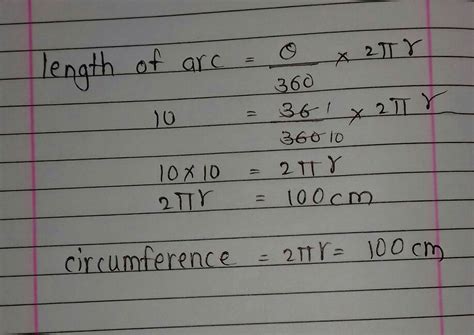 length of arc = θ/360 × 2πr
10 = 36 1/360 10 × 2πr
10×10 = 2πr
2πr = 100cm
circumference = 2πr = 100cm